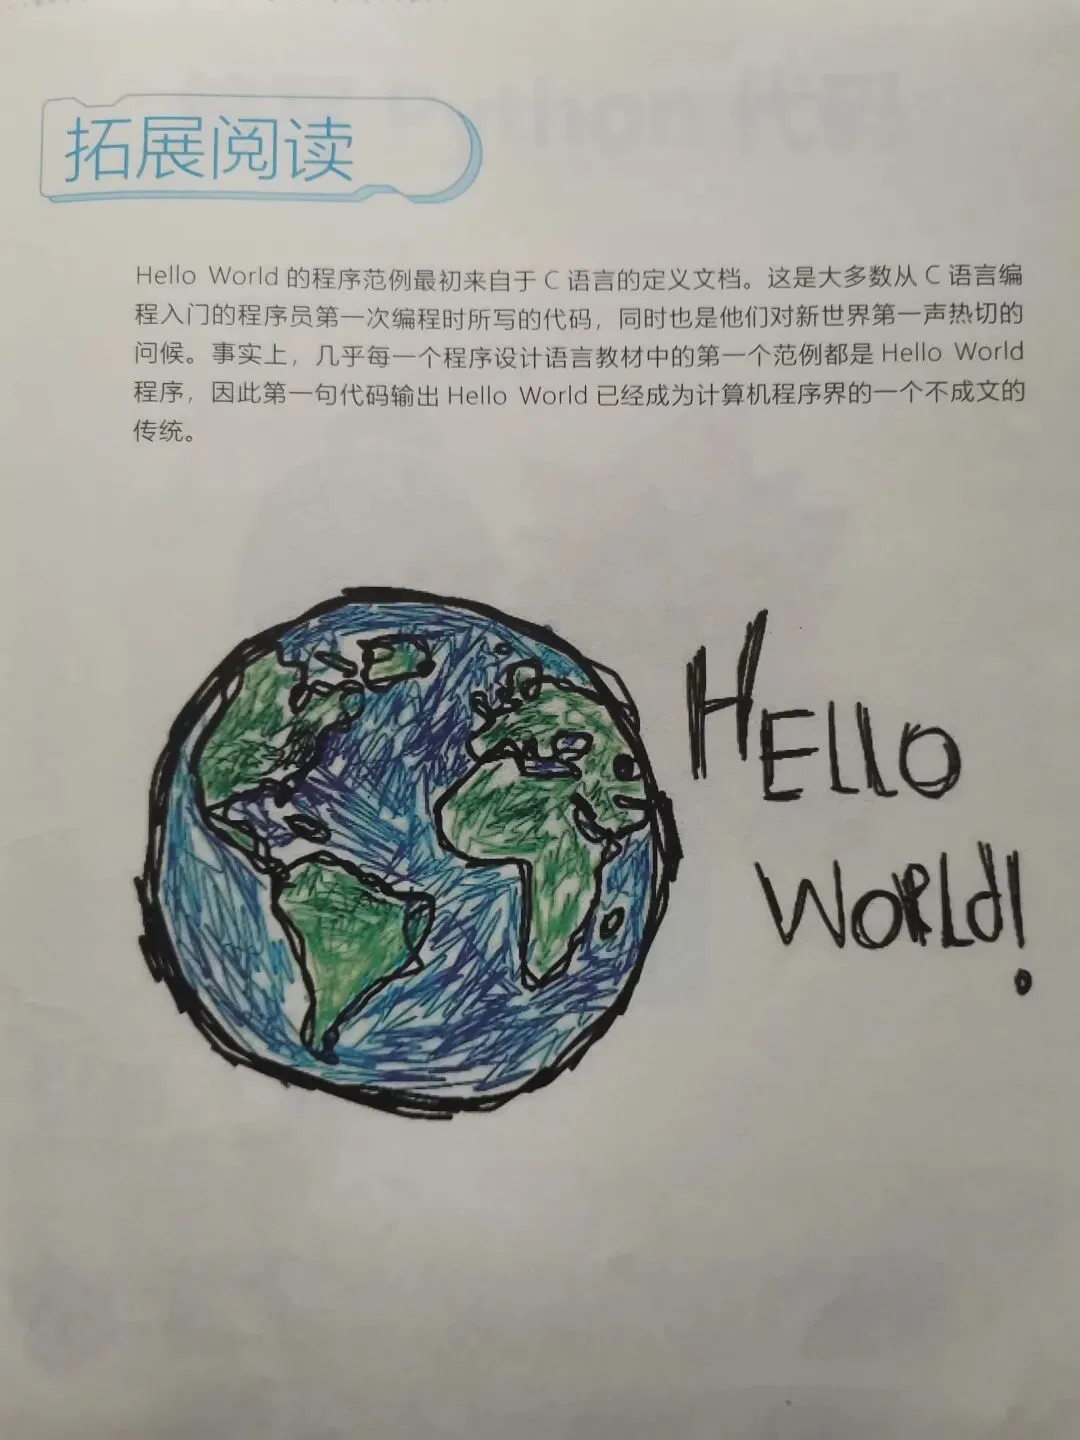 拓展阅读
Hello World 的程序范例最初来自于 C 语言的定义文档。这是大多数从 C 语言编
程入门的程序员第一次编程时所写的代码，同时也是他们对新世界第一声热切的
问候。事实上，几乎每一个程序设计语言教材中的第一个范例都是 Hello World
程序，因此第一句代码输出 Hello World 已经成为计算机程序界的一个不成文的
传统。
HELLO
WORLd!